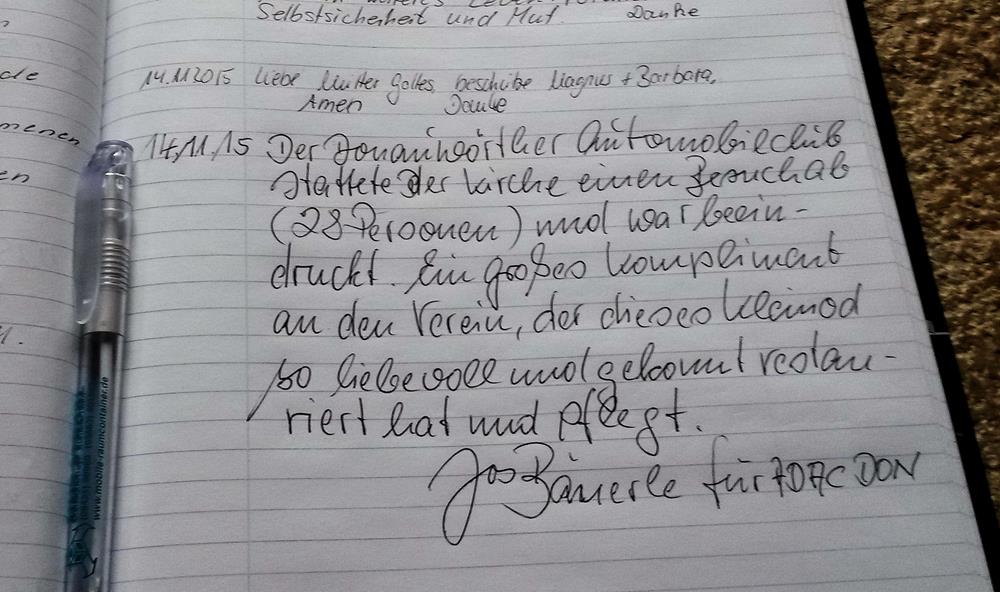 Selbstsicherheit und Mut. Danke
14.11.2015 Liebe Mutter Gottes, beschütze Magnus + Barbara,
Amen Danke
14.11.15 Der Donauwörther Automobilclub
stattete der Kirche einen Besuch ab
(28 Personen) und war beein-
druckt. Ein großes Kompliment
an den Verein, der dieses Kleinod
so liebevoll und gekonnt restau-
riert hat und pflegt.
Jos Bäuerle für ADAC DON
www.mobile-raumcontainer.de
de
menen
en